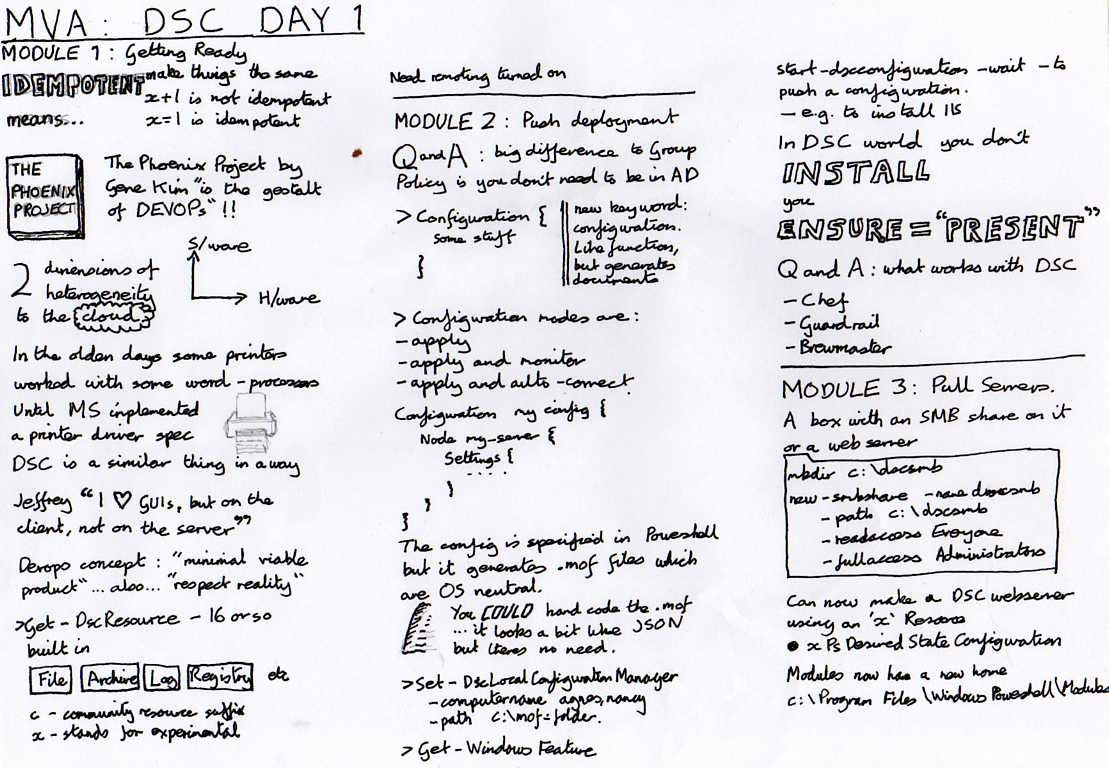 MVA: DSC DAY 1
MODULE 1: Getting Ready
IDEMPOTENT make things the same
x+1 is not idempotent
means... x=1 is idempotent
THE
PHOENIX
PROJECT
The Phoenix Project by
Gene Kim "is the gestalt
of DEVOPs" !!
S/ware
H/ware
2 dimensions of
heterogeneity
to the cloud
In the olden days some printers
worked with some word-processors
Until MS implemented
a printer driver spec
DSC is a similar thing in a way
Jeffrey "I ♡ GUIs, but on the
client, not on the server"
Devops concept: "minimal viable
product"... also... "respect reality"
>Get-DscResource - 16 or so
built in
File Archive Log Registry etc
c - community resource suffix
x - stands for experimental
Need remoting turned on
MODULE 2: Push deployment
Q and A: big difference to Group
Policy is you don't need to be in AD
> Configuration {
some stuff
}
new keyword:
configuration.
Like function,
but generates
documents
> Configuration modes are:
- apply
- apply and monitor
- apply and auto-correct
Configuration my config {
Node my-server {
Settings {
....
}
}
}
The config is specified in Poweshell
but it generates .mof files which
are OS neutral.
You COULD hand code the .mof
... it looks a bit like JSON
but theres no need.
>Set-DscLocalConfigurationManager
-computername agnes,nancy
-path c:\mof-folder.
> Get-Windows Feature
start-dscconfiguration -wait - to
push a configuration.
- e.g. to install IIS
In DSC world you don't
INSTALL
you
ENSURE="PRESENT"
Q and A: what works with DSC
- Chef
- Guardrail
- Brewmaster
MODULE 3: Pull Servers.
A box with an SMB share on it
or a web server
mkdir c:\dscsmb
new-smbshare -name dscsmb
-path c:\dscsmb
-readaccess Everyone
-fullaccess Administrators
Can now make a DSC webserver
using an 'x' Resource
• xPsDesired State Configuration
Modules now have a new home
c:\Program Files\Windows Poweshell\Modules